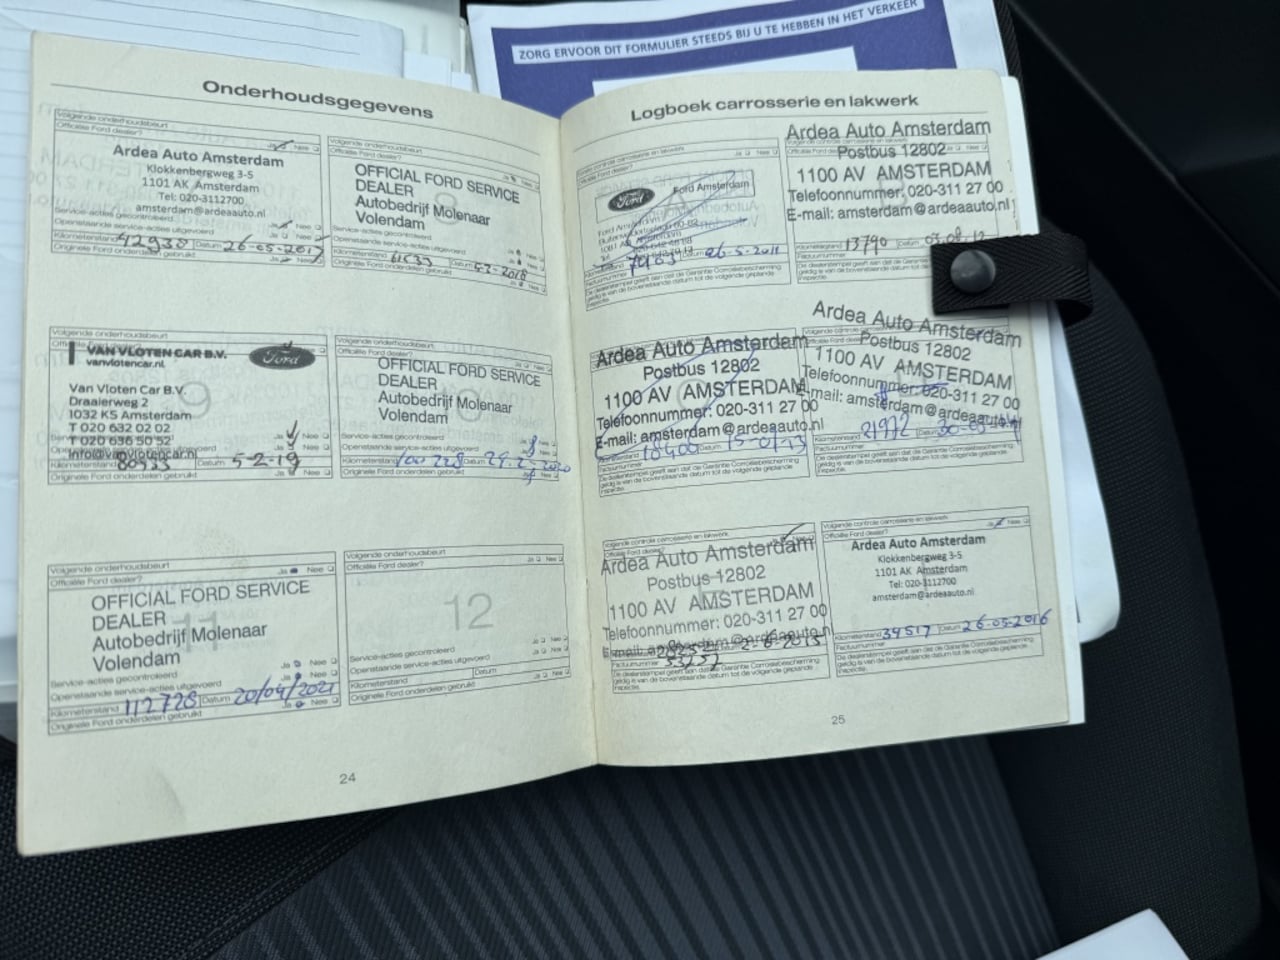 ZORG ERVOOR DIT FORMULIER STEEDS BIJ U TE HEBBEN IN HET VERKEER
Onderhoudsgegevens
Volgende onderhoudsbeurt
Officiële Ford dealer? Ja Nee
Ardea Auto Amsterdam
Klokkenbergweg 3-5
1101 AK Amsterdam
Tel: 020-3112700
amsterdam@ardeaauto.nl
Service-acties gecontroleerd
Openstaande service-acties uitgevoerd
Kilometerstand 42930 Datum 26-05-2017
Originele Ford onderdelen gebruikt Ja Nee
Volgende onderhoudsbeurt
Officiële Ford dealer? Ja Nee
8
OFFICIAL FORD SERVICE
DEALER
Autobedrijf Molenaar
Volendam
Service-acties gecontroleerd
Openstaande service-acties uitgevoerd
Kilometerstand Datum 5-2-2018
Originele Ford onderdelen gebruikt Ja Nee
Volgende onderhoudsbeurt
9
VAN VLOTEN CAR B.V.
vanvlotencar.nl
Ford
Van Vloten Car B.V.
Draaierweg 2
1032 KS Amsterdam
T 020 632 02 02
T 020 636 50 52
info@vanvlotencar.nl
Kilometerstand 80933 Datum 5-2-19
Originele Ford onderdelen gebruikt Ja Nee
Volgende onderhoudsbeurt
OFFICIAL FORD SERVICE
DEALER
Autobedrijf Molenaar
Volendam
Service-acties gecontroleerd
Openstaande service-acties uitgevoerd
Kilometerstand 100 728 Datum 2020
Originele Ford onderdelen gebruikt Ja Nee
Volgende onderhoudsbeurt
Officiële Ford dealer? Ja Nee
11
OFFICIAL FORD SERVICE
DEALER
Autobedrijf Molenaar
Volendam
Service-acties gecontroleerd Ja Nee
Openstaande service-acties uitgevoerd
Kilometerstand 112728 Datum 20/04/2021
Originele Ford onderdelen gebruikt Ja Nee
Volgende onderhoudsbeurt
Officiële Ford dealer? Ja Nee
12
Service-acties gecontroleerd Ja Nee
Openstaande service-acties uitgevoerd Ja Nee
Kilometerstand Datum
Originele Ford onderdelen gebruikt Ja Nee
24
Logboek carrosserie en lakwerk
Volgende controle carrosserie en lakwerk
Officiële Ford dealer? Ja Nee
Ford
Ford Amsterdam
Kilometerstand Datum 26-5-2011
Factuurnummer
De dealerstempel geeft aan dat de Garantie Corrosiebescherming
geldig is van de bovenstaande datum tot de volgende geplande
inspectie.
Ardea Auto Amsterdam
Postbus 12802
1100 AV AMSTERDAM
Telefoonnummer: 020-311 27 00
E-mail: amsterdam@ardeaauto.nl
Kilometerstand 13790 Datum 03.08.12
Factuurnummer
De dealerstempel geeft aan dat de Garantie
geldig is van de bovenstaande datum tot de
inspectie.
Ardea Auto Amsterdam
Postbus 12802
1100 AV AMSTERDAM
Telefoonnummer: 020-311 27 00
E-mail: amsterdam@ardeaauto.nl
Factuurnummer
De dealerstempel geeft aan dat de Garantie Corrosiebescherming
geldig is van de bovenstaande datum tot de volgende geplande
inspectie.
Ardea Auto Amsterdam
Postbus 12802
1100 AV AMSTERDAM
Telefoonnummer: 020-311 27 00
E-mail: amsterdam@ardeaauto.nl
Kilometerstand 21972 Datum
Factuurnummer
De dealerstempel geeft aan dat de Garantie Corrosiebescherming
geldig is van de bovenstaande datum tot de volgende geplande
inspectie.
Volgende controle carrosserie en lakwerk
Ardea Auto Amsterdam
Postbus 12802
1100 AV AMSTERDAM
Telefoonnummer: 020-311 27 00
E-mail: amsterdam@ardeaauto.nl
2-6-2015
Factuurnummer 53757
De dealerstempel geeft aan dat de Garantie Corrosiebescherming
geldig is van de bovenstaande datum tot de volgende geplande
inspectie.
Volgende controle carrosserie en lakwerk
Officiële Ford dealer? Ja Nee
Ardea Auto Amsterdam
Klokkenbergweg 3-5
1101 AK Amsterdam
Tel: 020-3112700
amsterdam@ardeaauto.nl
Kilometerstand 34517 Datum 26-05-2016
Factuurnummer
De dealerstempel geeft aan dat de Garantie Corrosiebescherming
geldig is van de bovenstaande datum tot de volgende geplande
inspectie.
25